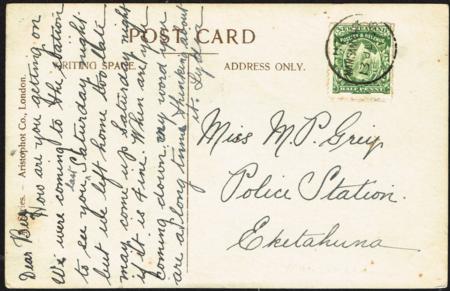 POST CARD
WRITING SPACE.
ADDRESS ONLY.
NEW ZEALAND
POSTAGE & REVENUE
HALF PENNY
Aristophot Co., London.
Miss M. P. Grey
Police Station.
Eketahuna
Dear
How are you getting on
We were coming to the station
to see you last Saturday night
but we left home too late
may come up Saturday night
if it is fine. When are you
coming down, my word you
are a long time thinking about
it. Lydia